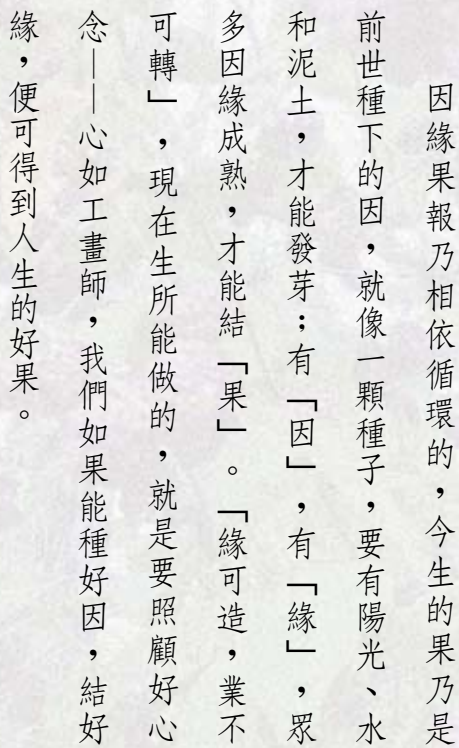 因緣果報乃相依循環的，今生的果乃是
前世種下的因，就像一顆種子，要有陽光、水
和泥土，才能發芽；有「因」，有「緣」，眾
多因緣成熟，才能結「果」。「緣可造，業不
可轉」，現在生所能做的，就是要照顧好心
念——心如工畫師，我們如果能種好因，結好
緣，便可得到人生的好果。